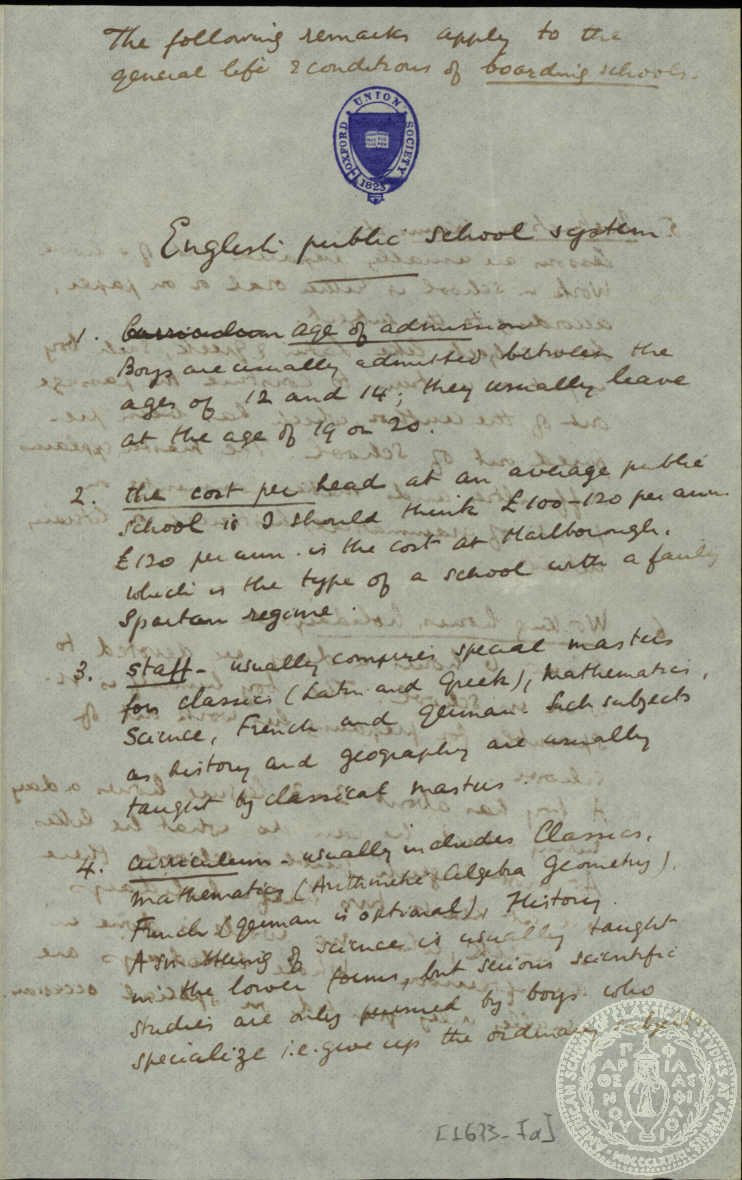 The following remarks apply to the
general life & conditions of boarding schools.
OXFORD UNION SOCIETY
1823
English public school system
1. Curriculum age of admission
Boys are usually admitted between the
ages of 12 and 14; they usually leave
at the age of 19 or 20.
2. the cost per head at an average public
school is I should think £100-120 per ann.
£120 per ann. is the cost at Marlborough.
which is the type of a school with a fairly
Spartan regime.
3. Staff - usually comprises special masters
for classics (Latin and Greek), Mathematics,
Science, French and German. Such subjects
as history and geography are usually
taught by classical masters.
4. Curriculum - usually includes Classics,
Mathematics (Arithmetic Algebra Geometry).
French (German is optional), History.
A smattering of science is usually taught
in the lower forms, but serious scientific
studies are only pursued by boys who
specialize i.e. give up the ordinary subjects
AMERICAN SCHOOL OF CLASSICAL STUDIES AT ATHENS
MDCCCLXXXI
[1623-Ia]